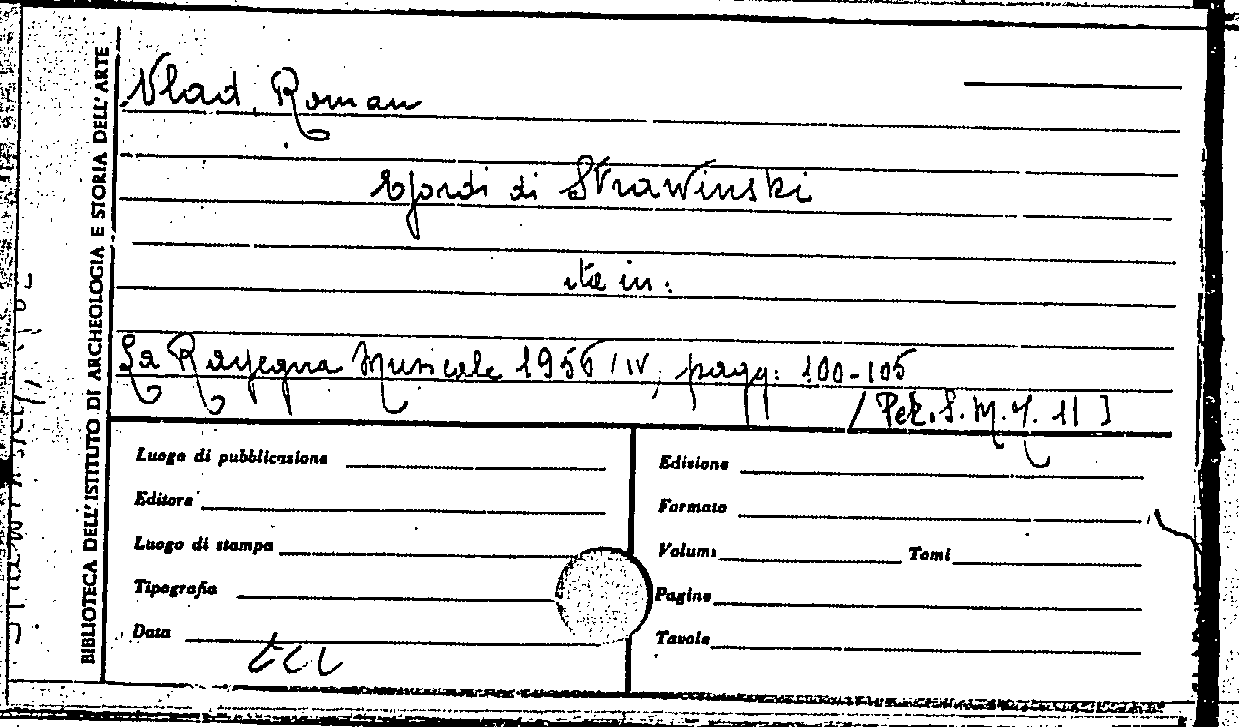 BIBLIOTECA DELL'ISTITUTO DI ARCHEOLOGIA E STORIA DELL'ARTE
Vlad, Roman
Esordi di Strawinski
sta in:
La Rassegna Musicale 1956/IV, pagg: 100-105
[Per. S. M. 11]
Luogo di pubblicazione
Edizione
Editore
Formato
Luogo di stampa
Volumi Tomi
Tipografia
Pagine
Data
Tavole